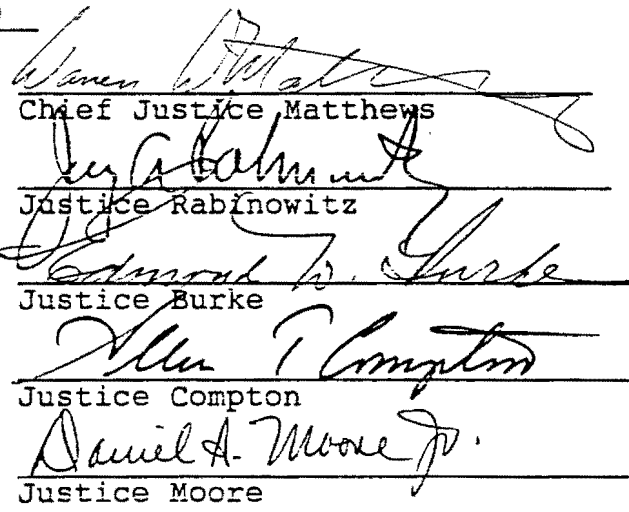 Warren W Matthews
Chief Justice Matthews
Jay A Rabinowitz
Justice Rabinowitz
Edmond W. Burke
Justice Burke
Allen T Compton
Justice Compton
Daniel A. Moore Jr.
Justice Moore